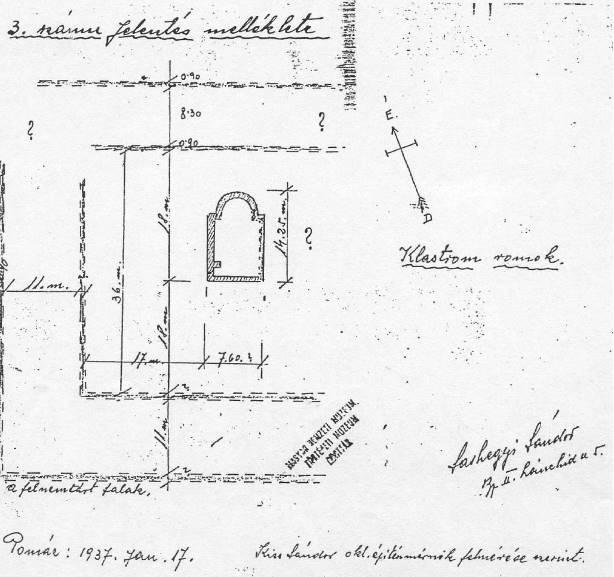 3. számu Jelentés melléklete
0.90
8.30
?
?
0.90
É.
18. m.
14.25. m.
?
Klastrom romok.
11. m.
36. m.
18. m.
17 m
7.60.
11 m
MAGYAR NEMZETI MÚZEUM
TÖRTÉNETI MÚZEUM
Sashegyi Sándor
Bp. II.
a felnemtárt falak.
Pomáz: 1937. Jan. 17.
Kiss Sándor okl. építészmérnök felmérése szerint.